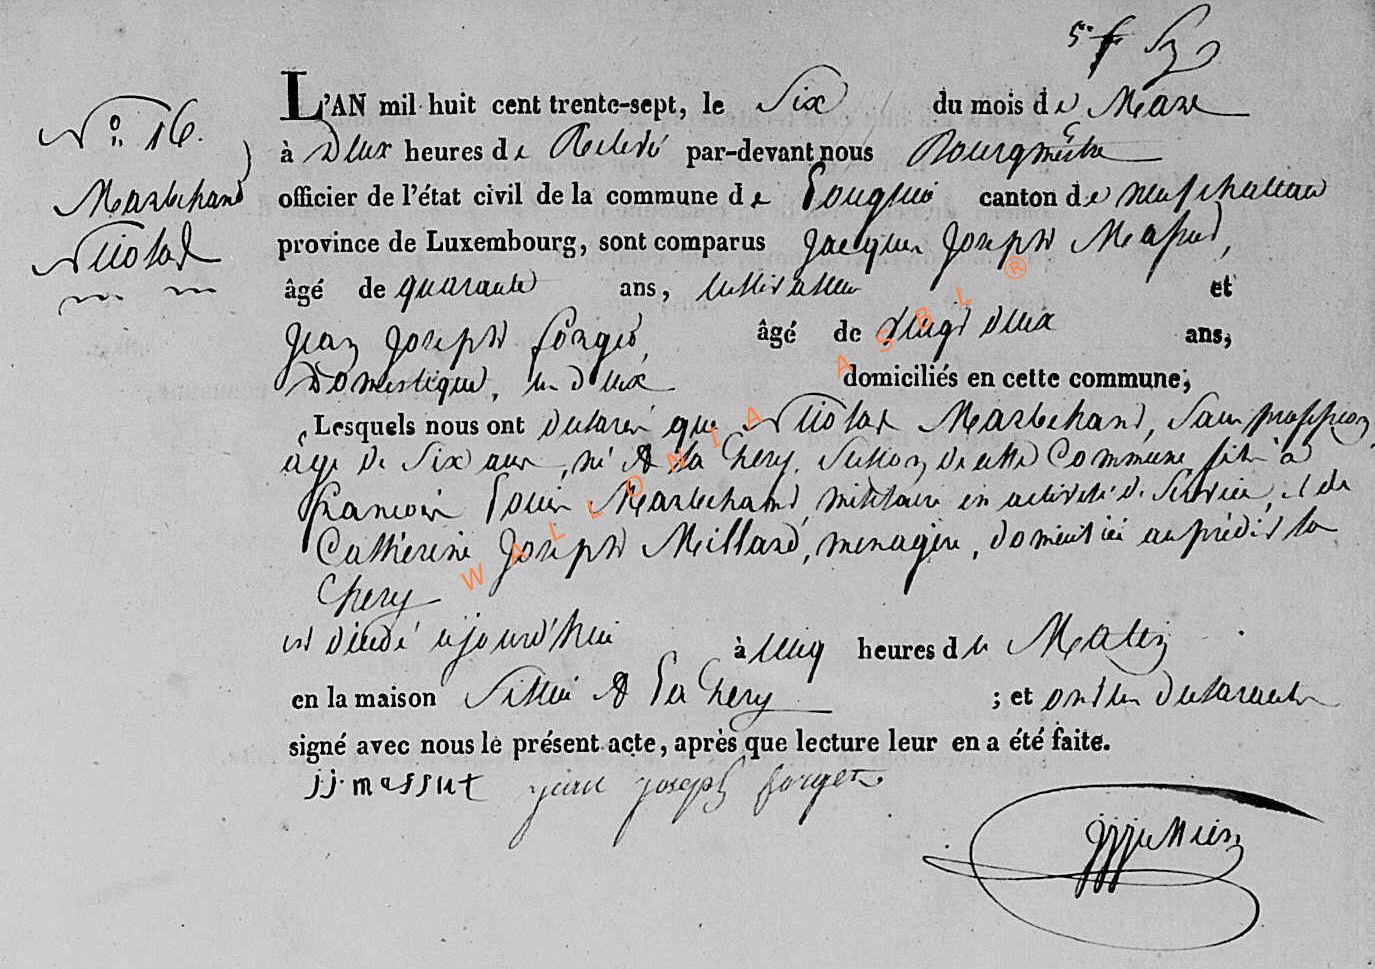 N° 16.
Marbehand
Nicolas
L'AN mil huit cent trente-sept, le Six du mois de Mars
à Deux heures de Relevé par-devant nous Bourgmestre
officier de l'état civil de la commune de canton de neufchateau
province de Luxembourg, sont comparus Jacques Joseph Massut,
âgé de quarante ans, cultivateur et
Jean Joseph forget, âgé de vingt deux ans,
Domestique, les deux domiciliés en cette commune;
Lesquels nous ont declaré que Nicolas Marbehand, Sans proffession,
agé de Six ans, né A la Chery, Section de cette Commune fils à
francois Louis Marbehand, militaire en activité de Service, et de
Catherine Joseph Millard, menagère, domiciliée au prédit la
Chery
est décédé ajourd'hui à cinq heures du Matin
en la maison Située A La Chery ; et ont les declarants
signé avec nous le présent acte, après que lecture leur en a été faite.
j j massut jean joseph forget
WALLONIA ASBL ®